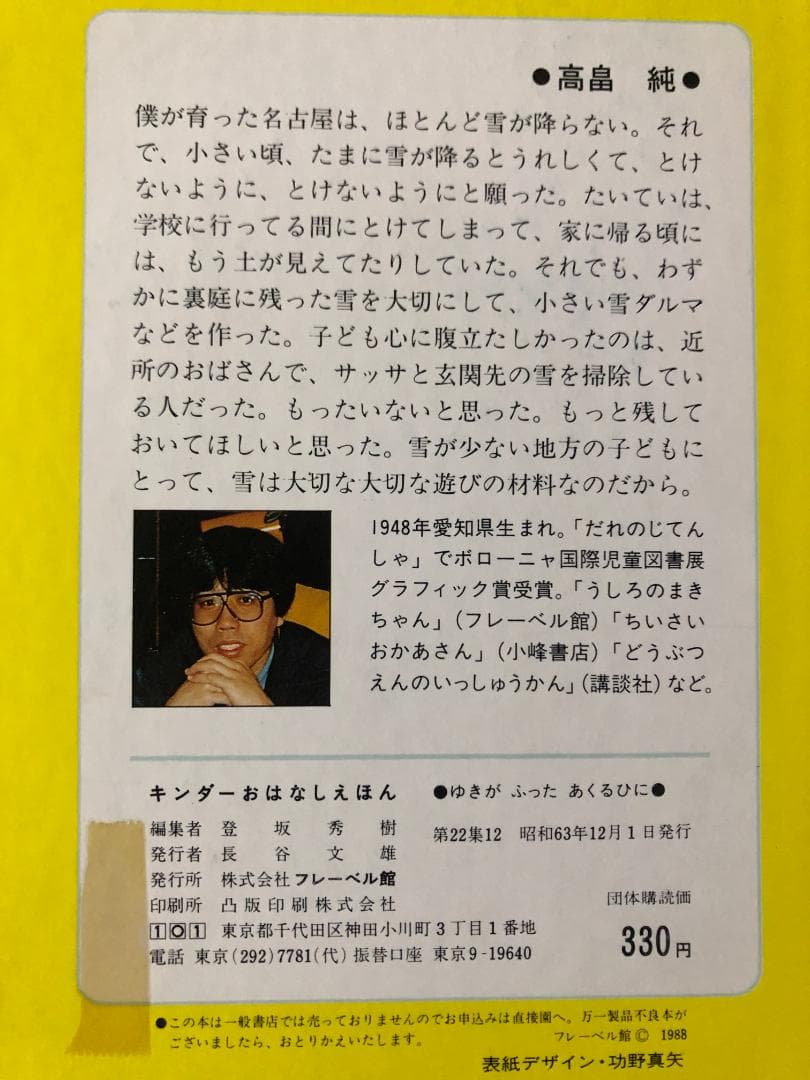 ●高畠　純●
僕が育った名古屋は、ほとんど雪が降らない。それ
で、小さい頃、たまに雪が降るとうれしくて、とけ
ないように、とけないようにと願った。たいていは、
学校に行ってる間にとけてしまって、家に帰る頃に
は、もう土が見えてたりしていた。それでも、わず
かに裏庭に残った雪を大切にして、小さい雪ダルマ
などを作った。子ども心に腹立たしかったのは、近
所のおばさんで、サッサと玄関先の雪を掃除してい
る人だった。もったいないと思った。もっと残して
おいてほしいと思った。雪が少ない地方の子どもに
とって、雪は大切な大切な遊びの材料なのだから。
1948年愛知県生まれ。「だれのじてん
しゃ」でボローニャ国際児童図書展
グラフィック賞受賞。「うしろのまき
ちゃん」(フレーベル館)「ちいさい
おかあさん」(小峰書店)「どうぶつ
えんのいっしゅうかん」(講談社)など。
キンダーおはなしえほん
編集者　登坂秀樹
発行者　長谷文雄
発行所　株式会社フレーベル館
印刷所　凸版印刷株式会社
101　東京都千代田区神田小川町3丁目1番地
電話　東京(292)7781(代) 振替口座　東京9-19640
●ゆきが　ふった　あくるひに●
第22集12　昭和63年12月1日発行
団体購読価
330円
●この本は一般書店では売っておりませんのでお申込みは直接園へ。万一製品不良本が
ございましたら、おとりかえいたします。　フレーベル館©　1988
表紙デザイン・功野真矢